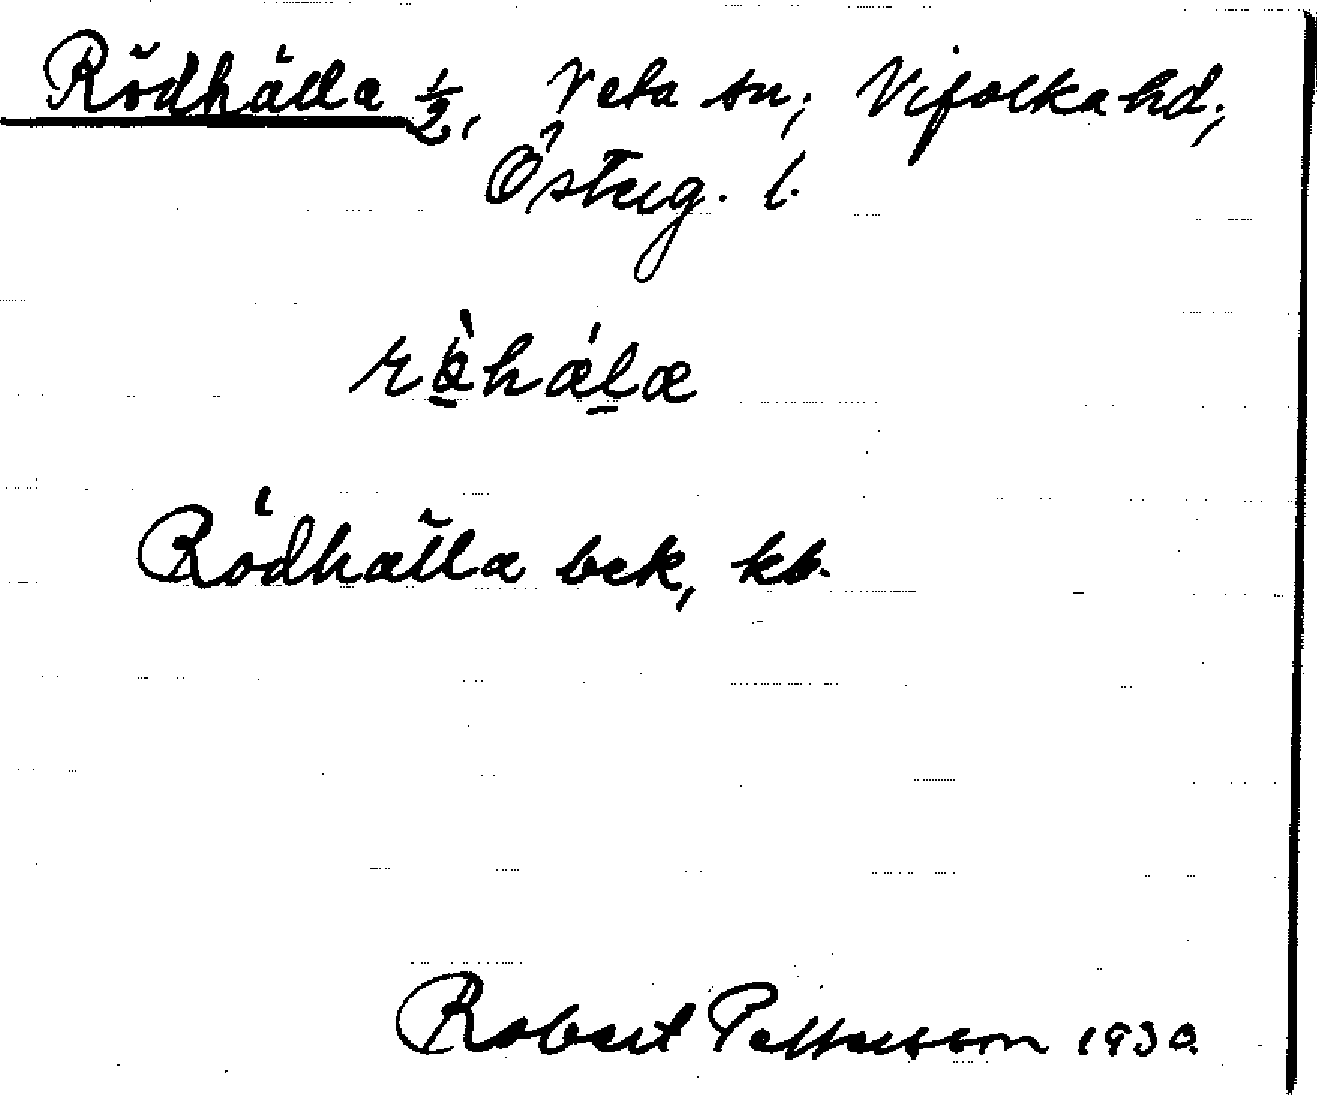 Rödhälla ½, Veta sn, Vifolka hd,
Österg. l.
Rödhälla bek, kb.
Robert Pettersson 1930.